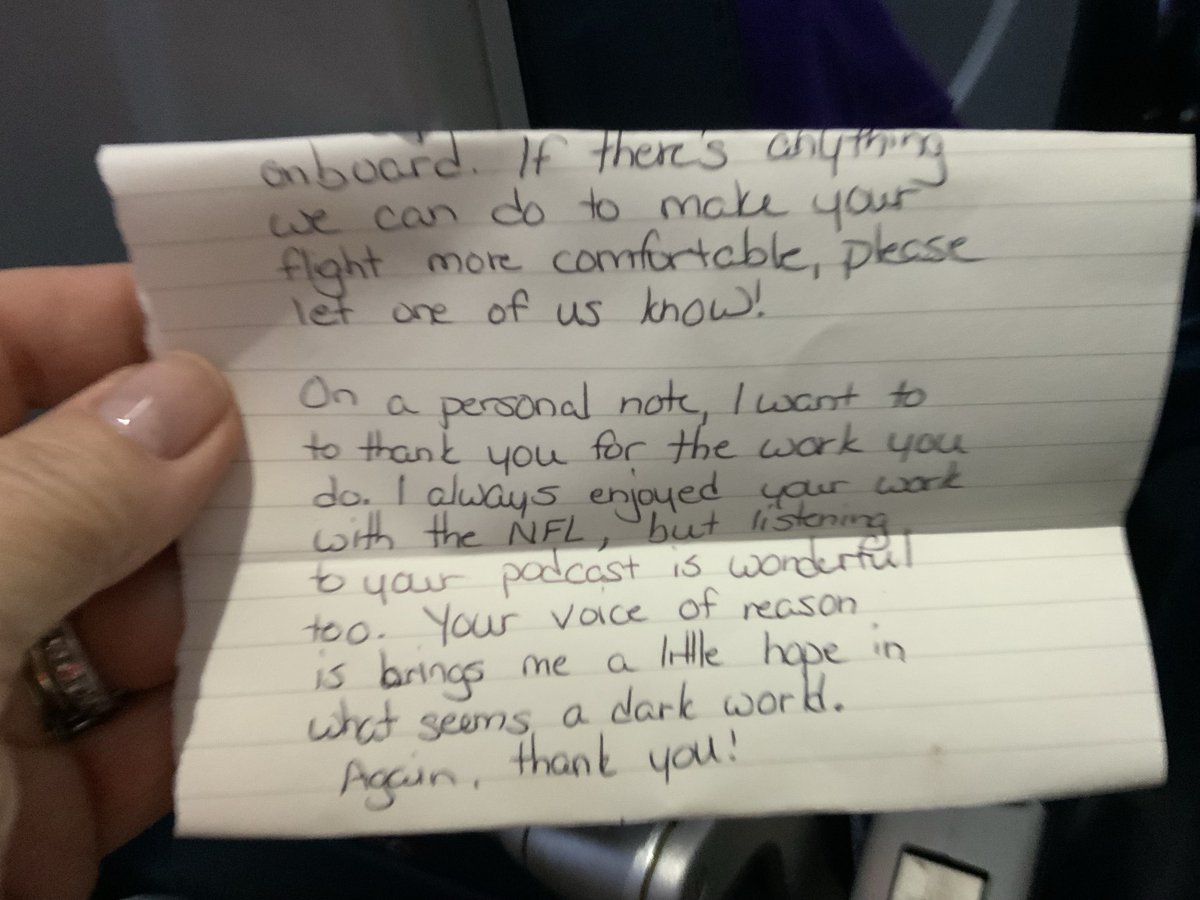 onboard. If there's anything
we can do to make your
flight more comfortable, please
let one of us know!
On a personal note, I want to
to thank you for the work you
do. I always enjoyed your work
with the NFL, but listening
to your podcast is wonderful
too. Your voice of reason
is brings me a little hope in
what seems a dark world.
Again, thank you!